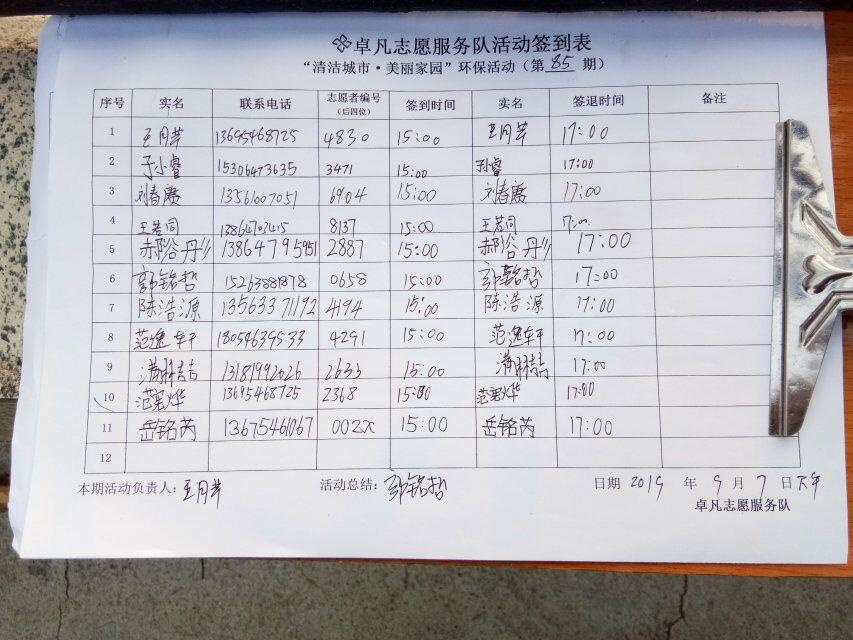 卓凡志愿服务队活动签到表
“清洁城市·美丽家园”环保活动（第 85 期）
序号 实名 联系电话 志愿者编号（后四位） 签到时间 实名 签退时间 备注
1 王月芹 13695468725 4830 15:00 王月芹 17:00
2 孙睿 15306473635 3471 15:00 孙睿 17:00
3 刘春赓 13561007051 6904 15:00 刘春赓 17:00
4 王若同 13864703415 8137 15:00 王若同 17:00
5 郝浴丹 13864795951 2887 15:00 郝浴丹 17:00
6 郭铭哲 15263881878 0658 15:00 郭铭哲 17:00
7 陈浩源 13563371192 4194 15:00 陈浩源 17:00
8 范逸轩 18054639533 4291 15:00 范逸轩 17:00
9 13181992026 2633 15:00 17:00
10 范 烨 13695468725 2368 15:00 范 烨 17:00
11 岳铭芮 13675461067 002X 15:00 岳铭芮 17:00
12
本期活动负责人：王月芹 活动总结：郭铭哲 日期 2019 年 9 月 7 日下午
卓凡志愿服务队